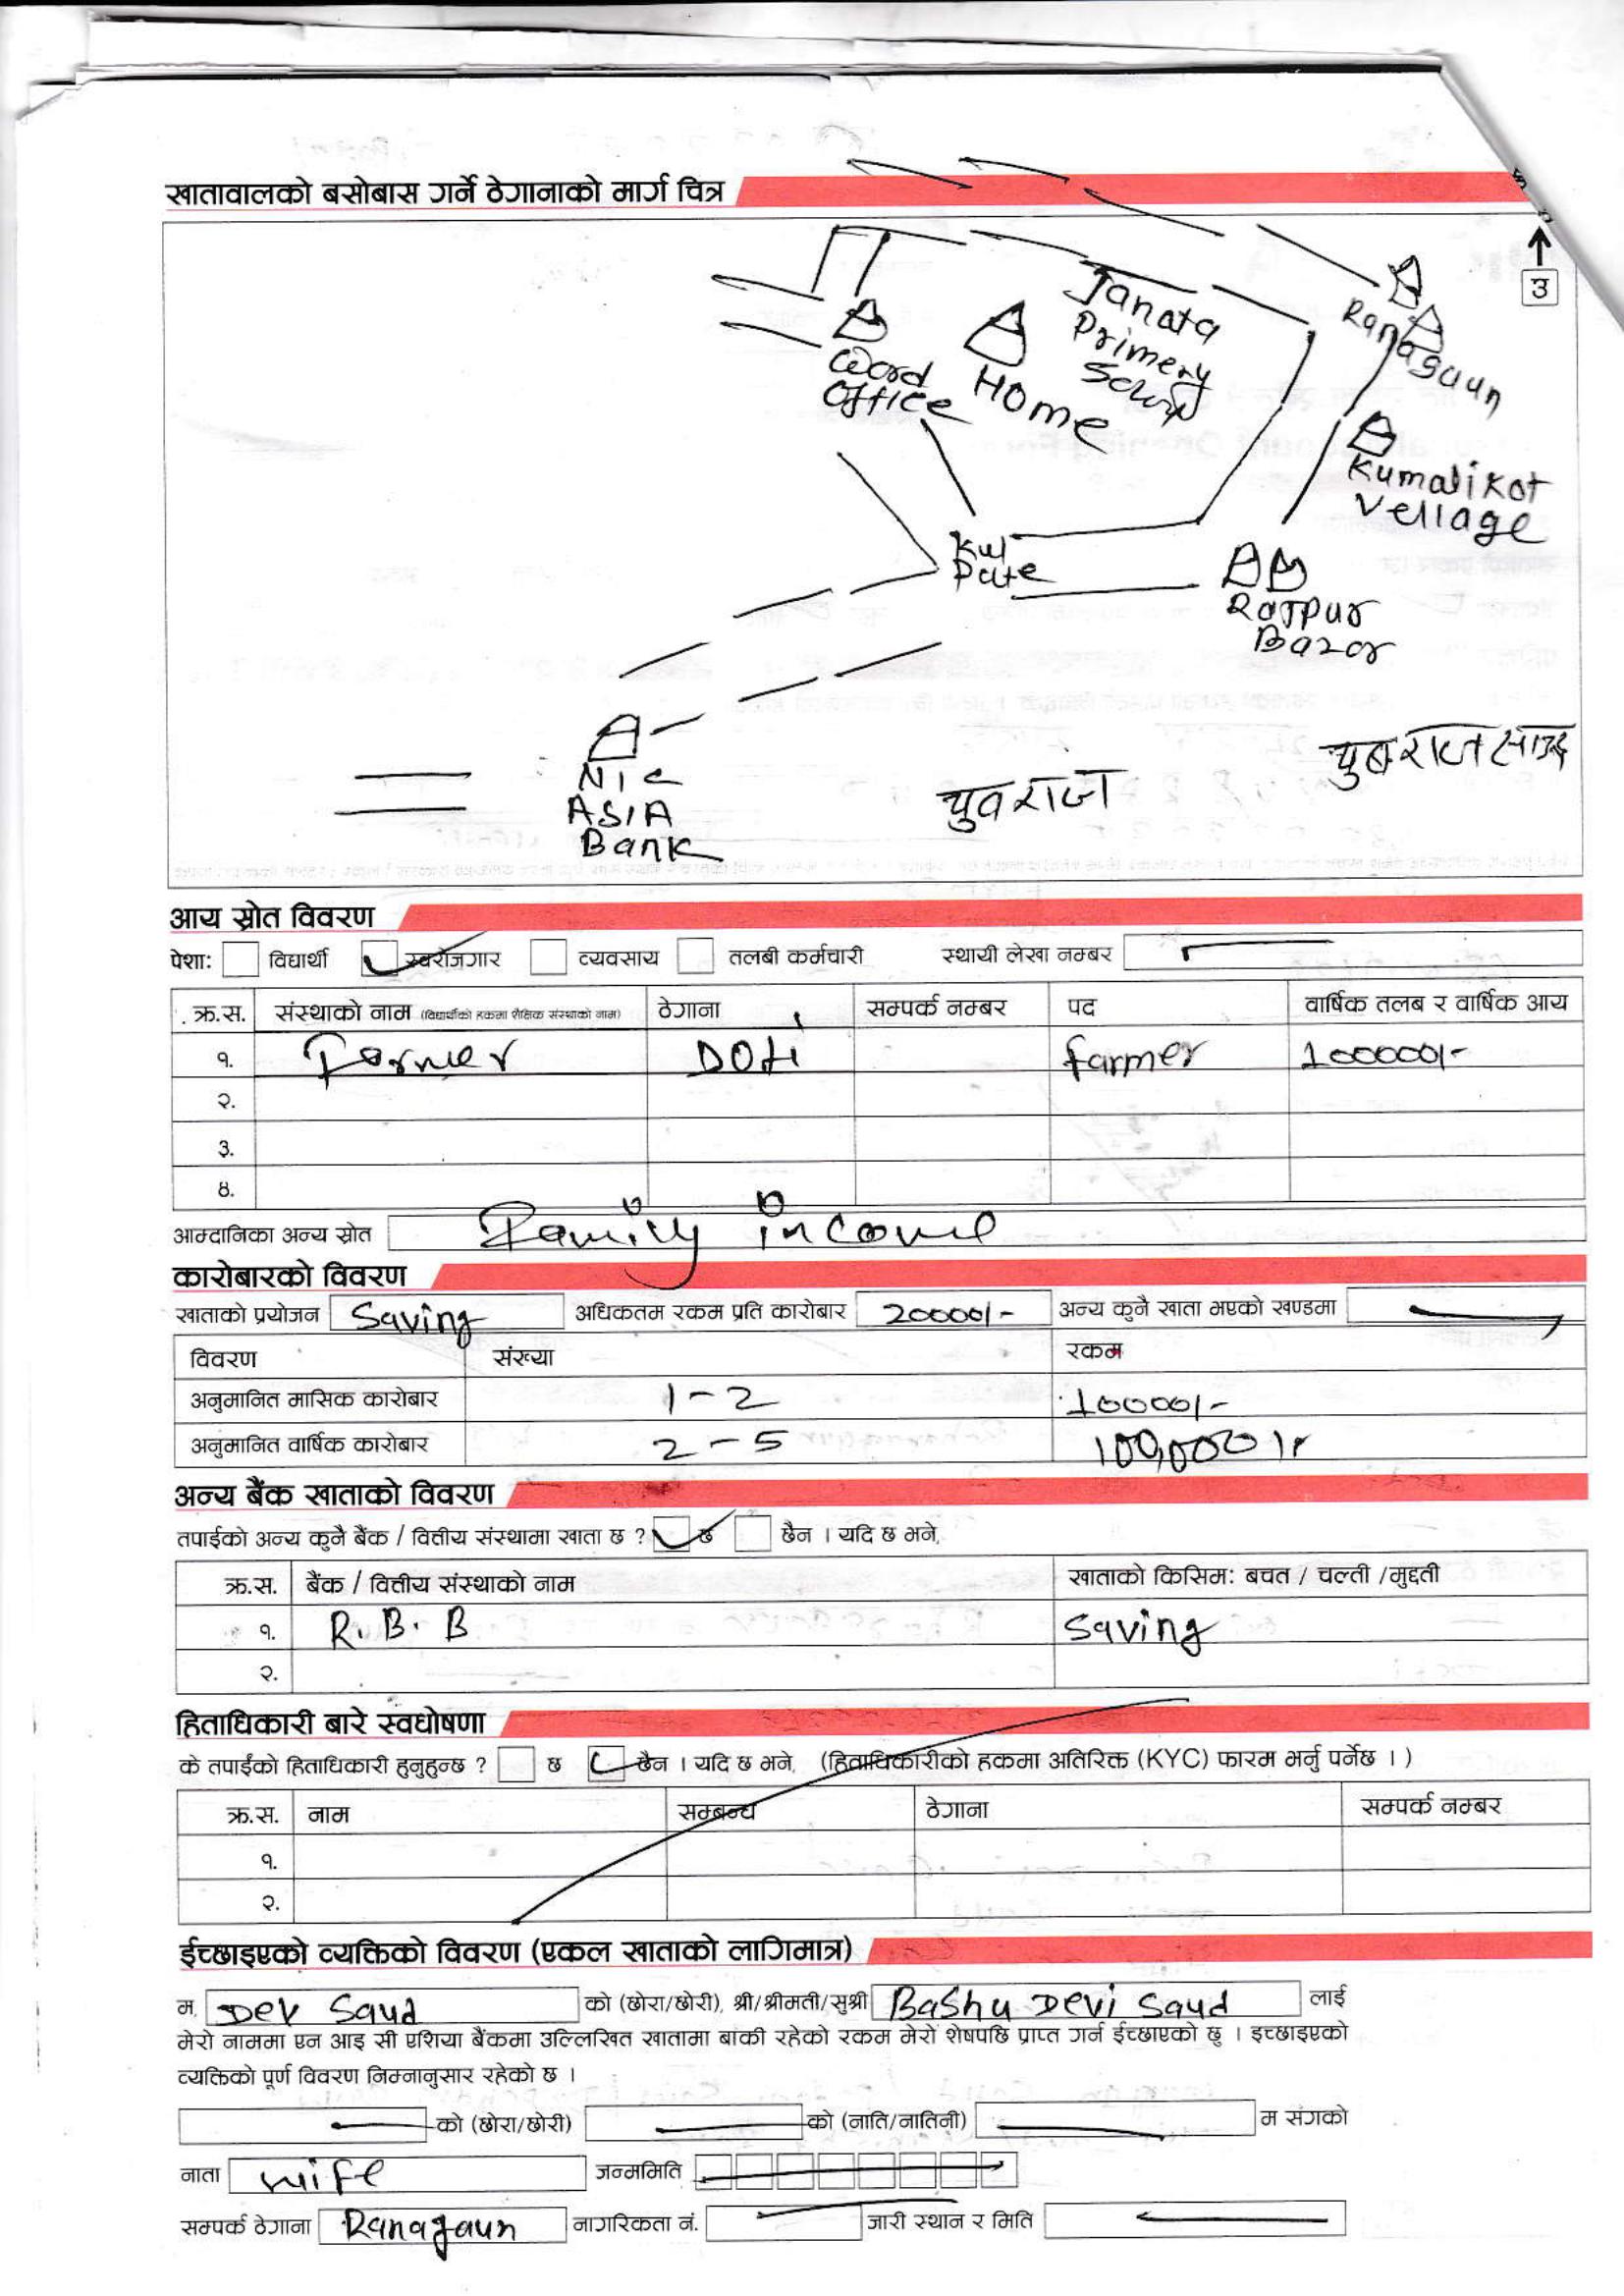 खातावालको बसोबास गर्ने ठेगानाको मार्ग चित्र
उ
Janata
Primery
Ranagaun
Word
Office
Home
Kumalikot
Vellage
Rajpur
Bazar
NIC
ASIA
Bank
युवराज
युवराज साउद
आय स्रोत विवरण
पेशाः विद्यार्थी स्वरोजगार व्यवसाय तलबी कर्मचारी स्थायी लेखा नम्बर
क्र.स. संस्थाको नाम (विद्यार्थीको हकमा शैक्षिक संस्थाको नाम) ठेगाना सम्पर्क नम्बर पद वार्षिक तलब र वार्षिक आय
१. Farmer Doti farmer 100000/-
२.
३.
४.
आम्दानिका अन्य स्रोत Family income
कारोबारको विवरण
खाताको प्रयोजन Saving अधिकतम रकम प्रति कारोबार 20000/- अन्य कुनै खाता भएको खण्डमा
विवरण संख्या रकम
अनुमानित मासिक कारोबार 1-2 10000/-
अनुमानित वार्षिक कारोबार 2-5 100,000/-
अन्य बैंक खाताको विवरण
तपाईको अन्य कुनै बैंक / वित्तीय संस्थामा खाता छ ? छ छैन । यदि छ भने,
क्र.स. बैंक / वित्तीय संस्थाको नाम खाताको किसिम: बचत / चल्ती /मुद्दती
१. R.B.B Saving
२.
हिताधिकारी बारे स्वघोषणा
के तपाईको हिताधिकारी हुनुहुन्छ ? छ छैन । यदि छ भने, (हिताधिकारीको हकमा अतिरिक्त (KYC) फारम भर्नु पर्नेछ । )
क्र.स. नाम सम्बन्ध ठेगाना सम्पर्क नम्बर
१.
२.
ईच्छाइएको व्यक्तिको विवरण (एकल खाताको लागिमात्र)
म, Dev Saud को (छोरा/छोरी), श्री/श्रीमती/सुश्री Bashu Devi Saud लाई
मेरो नाममा एन आइ सी एशिया बैंकमा उल्लिखित खातामा बांकी रहेको रकम मेरो शेषपछि प्राप्त गर्न ईच्छाएको छु । इच्छाइएको
व्यक्तिको पूर्ण विवरण निम्नानुसार रहेको छ ।
को (छोरा/छोरी) को (नाति/नातिनी) म संगको
नाता wife जन्ममिति
सम्पर्क ठेगाना Ranagaun नागरिकता नं. जारी स्थान र मिति